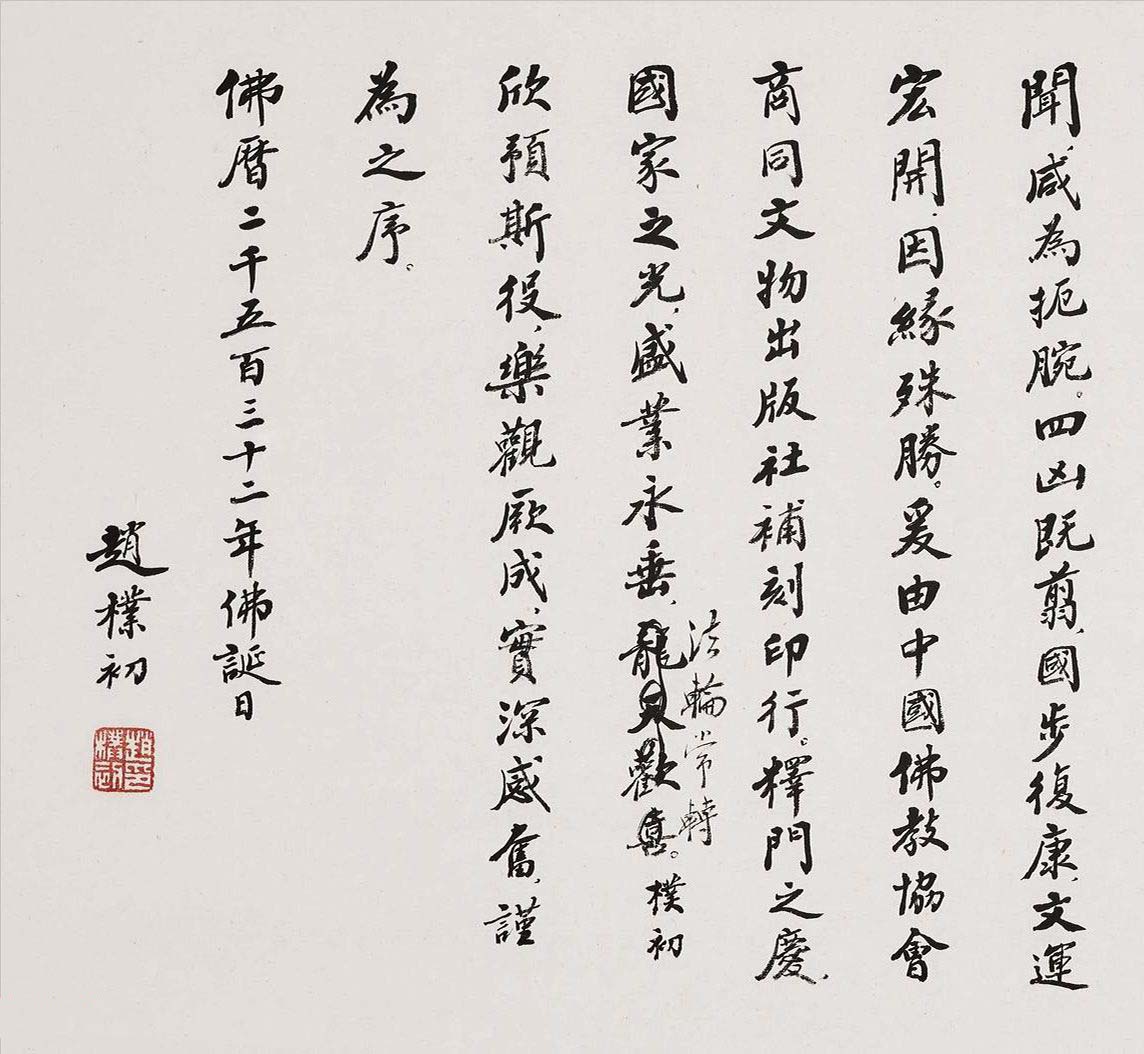 聞、咸為扼腕。四凶既翦、國步復康、文運
宏開、因緣殊勝。爰由中國佛教協會
商同文物出版社補刻印行。釋門之慶、
國家之光、盛業永垂、龍天歡喜。樸初
法輪常轉
欣預斯役、樂觀厥成、實深感奮、謹
為之序。
佛曆二千五百三十二年佛誕日
趙樸初
趙樸初印